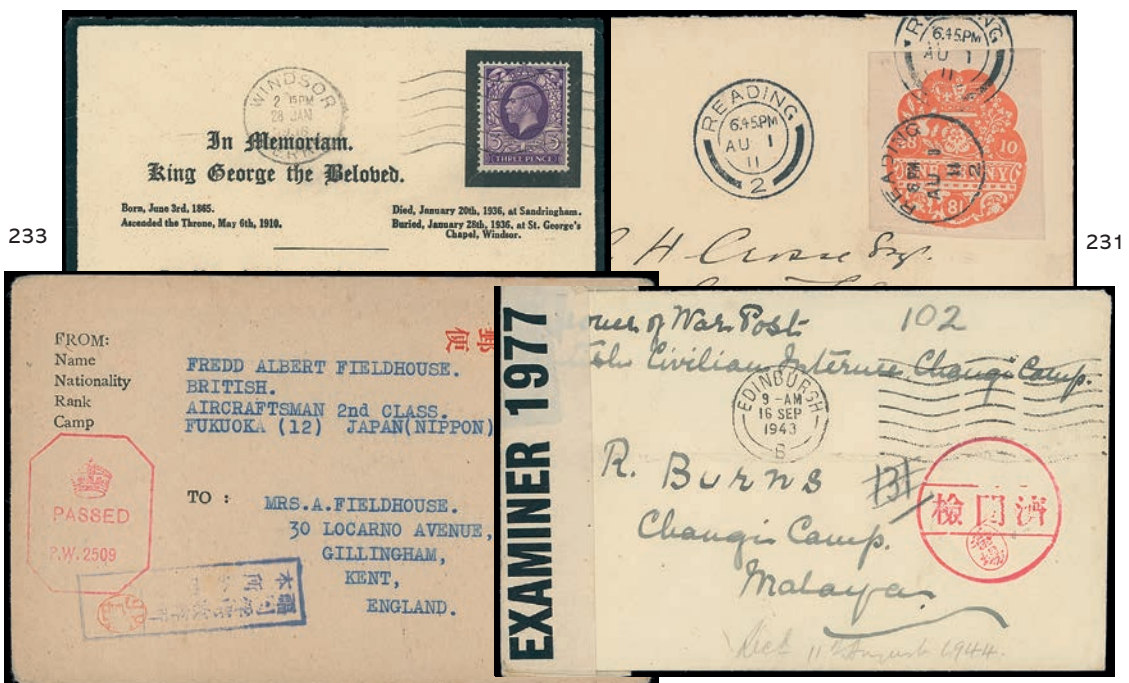 WINDSOR
2 15PM
28 JAN
In Memoriam.
King George the Beloved.
THREE PENCE
Born, June 3rd, 1865.
Ascended the Throne, May 6th, 1910.
Died, January 20th, 1936, at Sandringham.
Buried, January 28th, 1936, at St. George's
Chapel, Windsor.
233
READING
6.45.PM
AU 1
11
READING
6.45.PM
AU 1
11
2
READING
AU 1
11
2
10
PENNY
18
H Crosse Esq.
231
FROM:
Name
Nationality
Rank
Camp
郵
便
FREDD ALBERT FIELDHOUSE.
BRITISH.
AIRCRAFTSMAN 2nd CLASS.
FUKUOKA (12) JAPAN(NIPPON)
PASSED
P.W. 2509
TO :
MRS.A.FIELDHOUSE.
30 LOCARNO AVENUE,
GILLINGHAM,
KENT,
ENGLAND.
EXAMINER 1977
of War Post
102
Civilian Internee Changi Camp.
EDINBURGH
9 - AM
16 SEP
1943
6
R. Burns
131
Changi Camp.
Malaya
檢閲濟
Recd 11th August 1944.